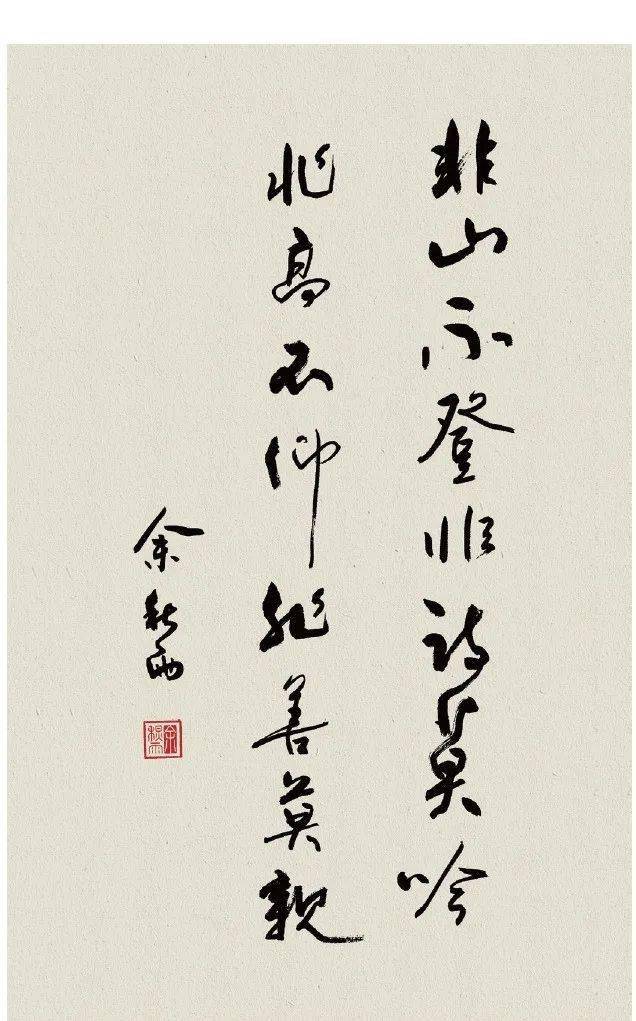 非山不登非诗莫吟
非高不仰非善莫親
余秋雨